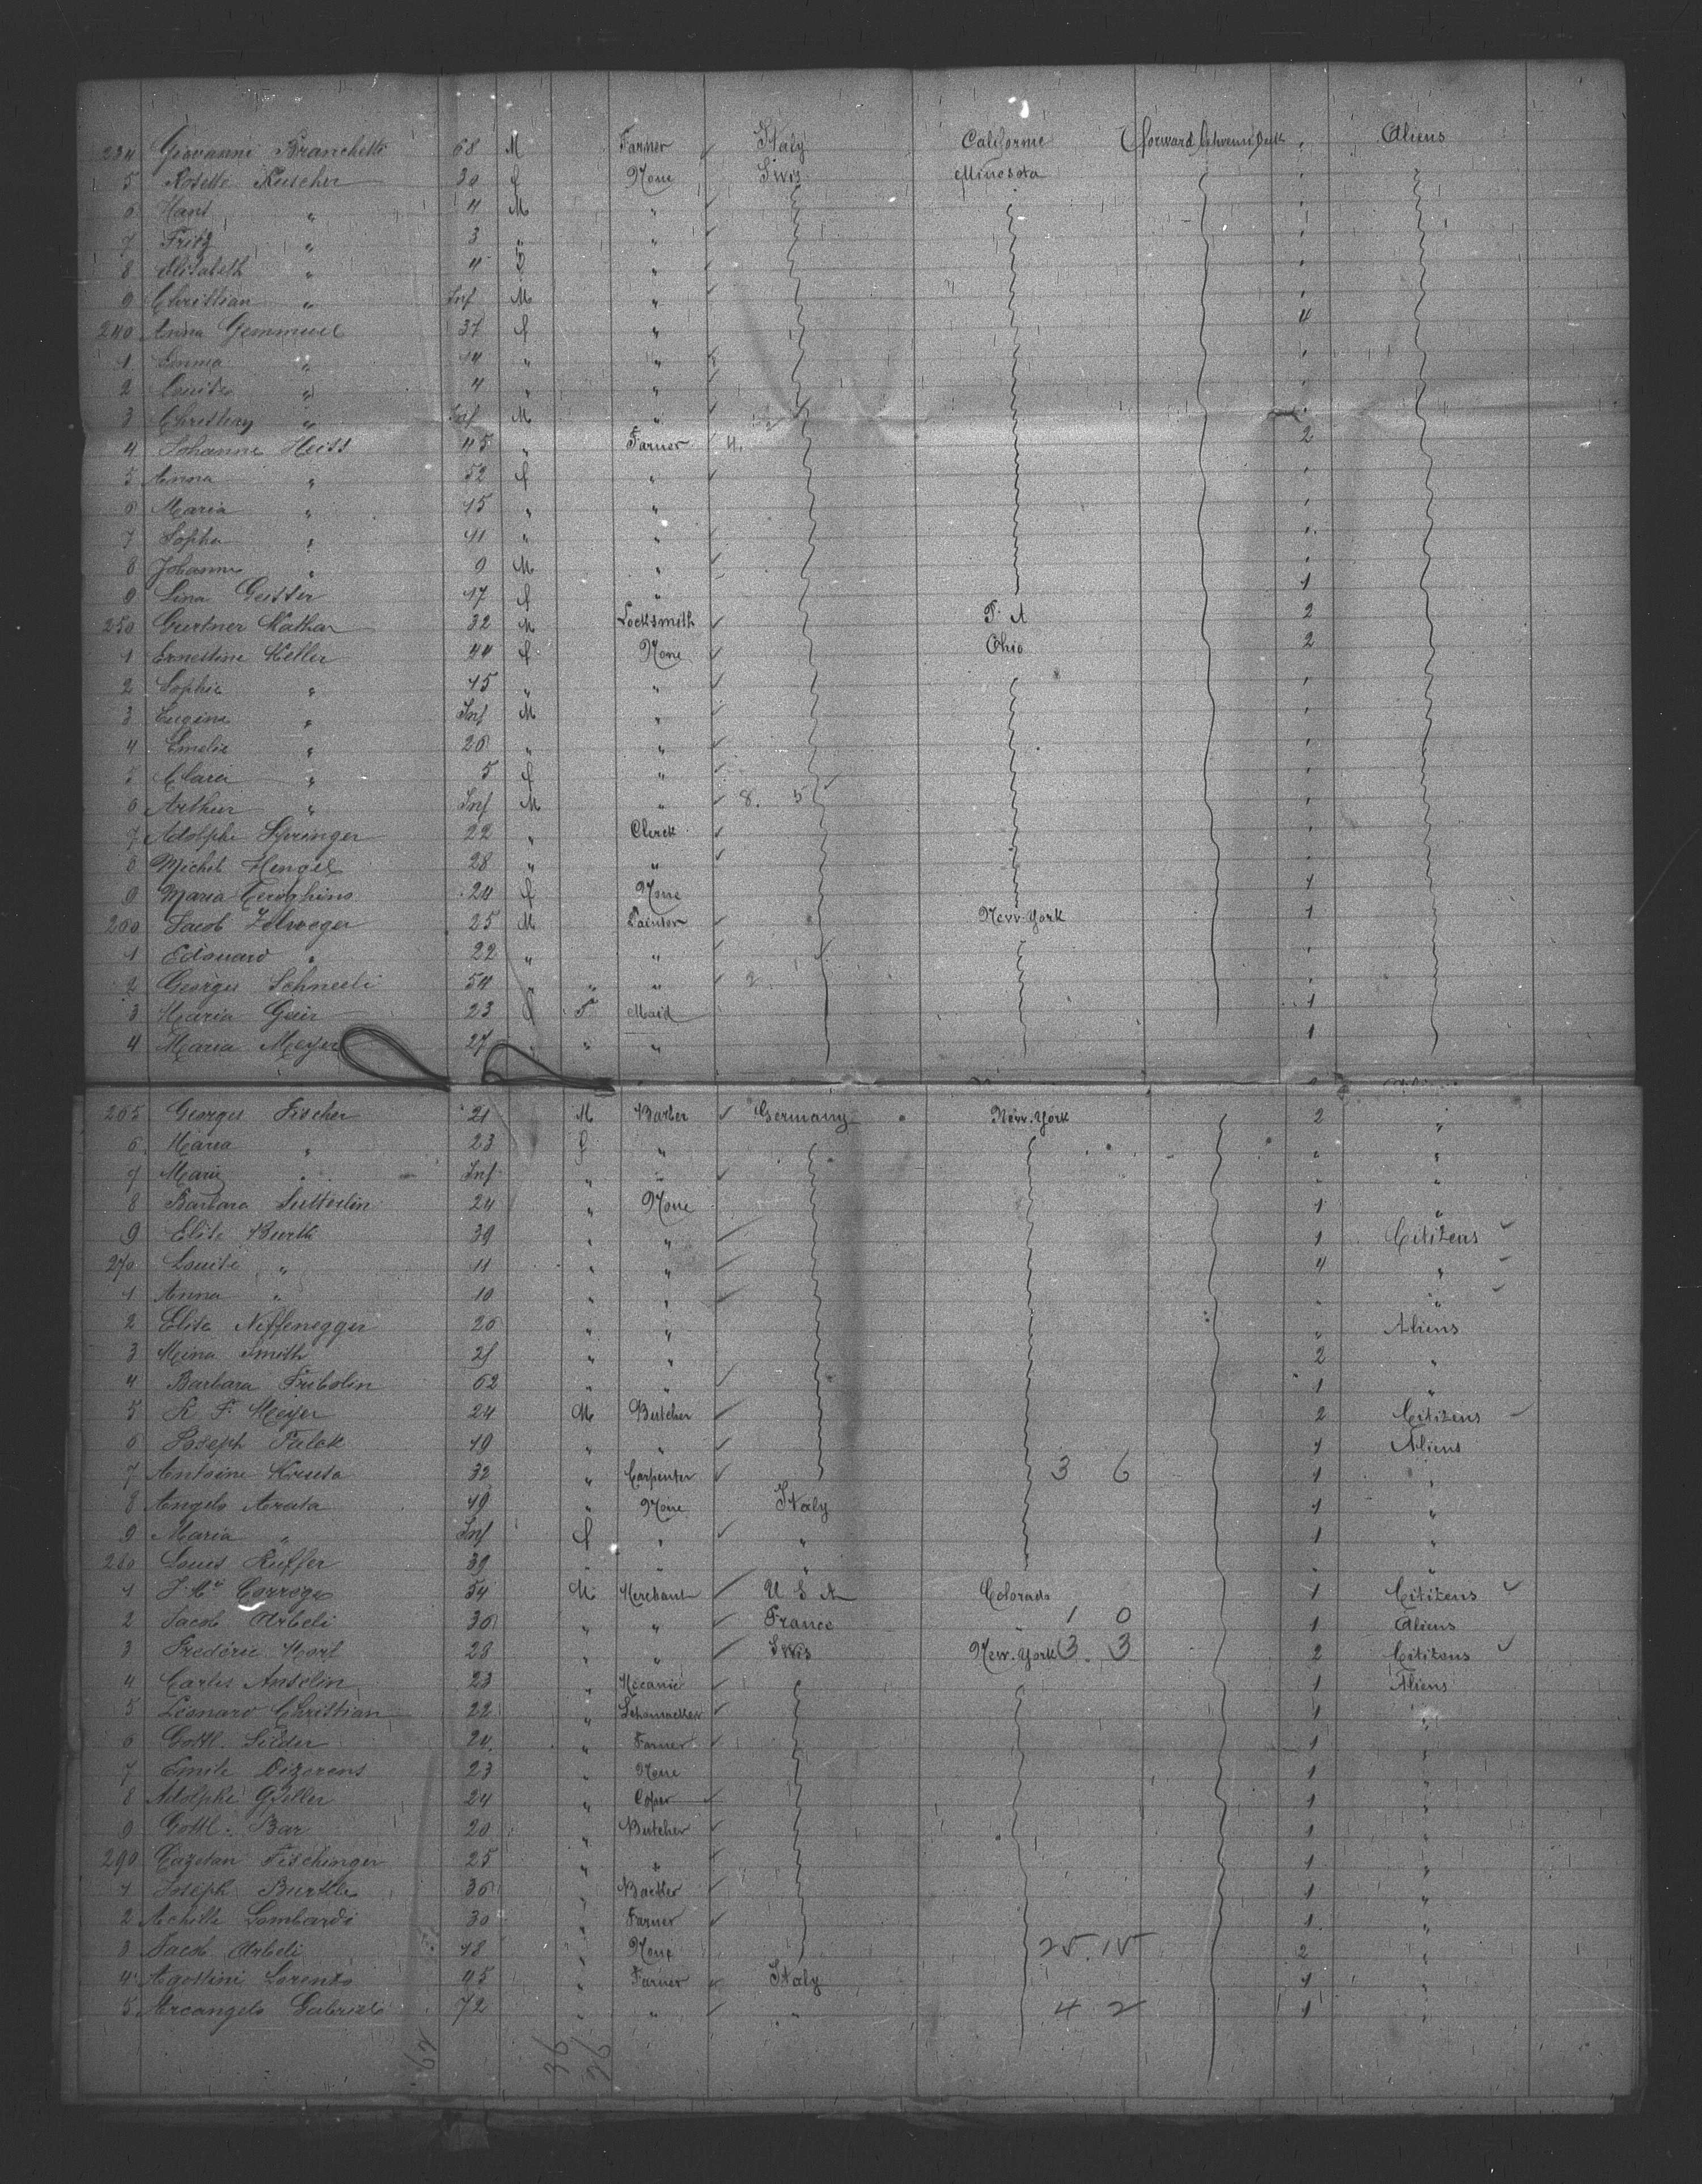 234 Giovanni Branchetti 68 M Farmer Italy Californie forward Between Deck Aliens
5 Rosette Kuscher 30 f None Swis Minesota
6 Hans " 4 M "
7 Fritz " 3 " "
8 Elisabeth " 4 f "
9 Christian " Inf M "
240 Anna Gemmuel 37 f " 4
1 Emma " 14 " "
2 Louise " 4 " "
3 " Inf M "
4 Johanne Heiss 45 " Farmer 4. 2
5 Anna " 52 f "
6 Maria " 15 " "
7 Sophie " 11 " "
8 Johanne " 9 M "
9 Lina 17 f " 1
250 Gurtner Nathan 32 M Locksmith P. A 2
1 Ernestine Keller 44 f None Ohio 2
2 Sophie " 15 " "
3 Eugene " Inf M "
4 Emelie " 26 " "
5 Clara " 5 f "
6 Arthur " Inf M " 8. 5
7 Adolphe Springer 22 " Clerck
8 Michel Hengel 28 " "
9 Maria 24 f None 1
260 Jacob Zelweger 25 M Painter New-York 1
1 Edouard " 22 " "
2 Georges Schneeli 54 " " " 2
3 Maria Geir 23 f F Maid 1
4 Maria Meyer 27 " " " 1
265 Georges Fischer 21 M Barber Germany New-York 2 "
6 Maria " 23 f " " "
7 Marie " Inf " " " "
8 Barbara Sutterlin 24 " None 1 "
9 Elise Burk 39 " " 1 Citizens
270 Louise " 11 " " 4 "
1 Anna " 10 " " " "
2 Elise Niffenegger 26 " " " Aliens
3 Mina Smith 21 " " 2 "
4 Barbara Fribolin 62 " " 1 "
5 K F. Meyer 24 M Butcher 2 Citizens
6 Joseph Falck 19 " " 1 Aliens
7 Antoine 32 " Carpenter 3 6 1 "
8 Angelo Arata 49 " None Italy 1 "
9 Maria " Inf f " " 1 "
280 Louis Kuffer 39 " " " " "
1 54 M Merchant U S A Colorado 1 Citizens
2 Jacob Arbeli 36 " " France " 1 0 1 Aliens
3 Frederic 28 " " Swis New-York 3 3 2 Citizens
4 Carles Anselin 23 " Mecanic 1 Aliens
5 Leonard Christian 22 " Schomacker 1 "
6 Gottl. 24 " Farmer 1 "
7 Emile Dizerens 23 " None 1 "
8 Adolphe Gfeller 24 " Coper 1 "
9 Gottl. Bar 20 " Butcher 1 "
290 Cajetan Fischinger 25 " " 1 "
1 Joseph Burkle 36 " Backer 1 "
2 Achille Lombardi 30 " Farmer 1 "
3 Jacob Arbeli 18 " None 25.15 2 "
4 Agostini Lorenzo 45 " Farmer Italy 1 "
5 Arcangelo Gabriele 72 " " " 4 2 1 "
62 36 26